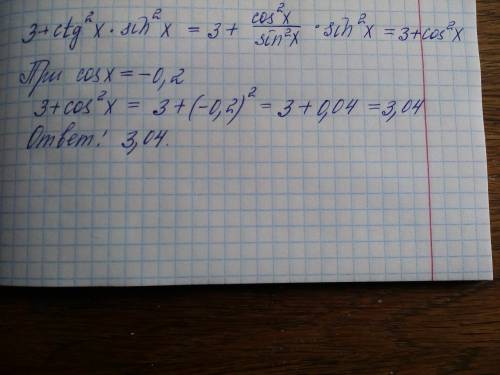 3+ctg²x·sin²x = 3+ cos²x/sin²x ·sin²x = 3+cos²x
При cosx = -0,2
3+cos²x = 3+(-0,2)² = 3+0,04 = 3,04
Ответ: 3,04.